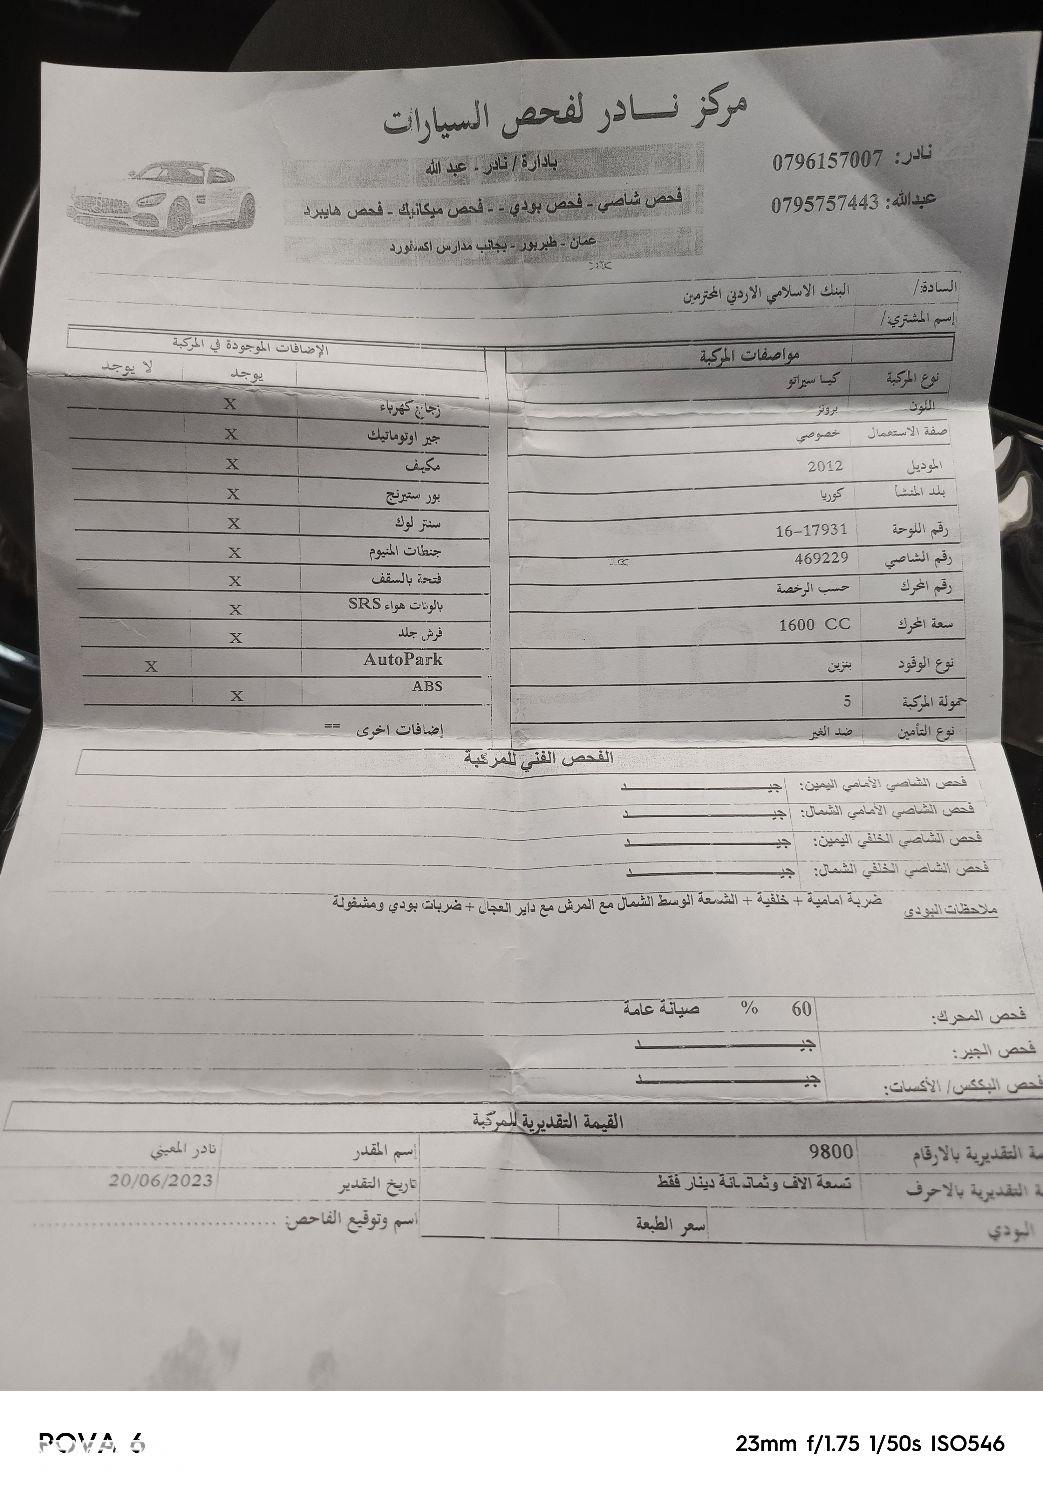 مركز نــادر لفحص السيارات
بادارة / نادر - عبد الله
نادر: 0796157007
فحص شاصي - فحص بودي - - فحص ميكانيك - فحص هايبرد
عبدالله: 0795757443
عمان - طبربور - بجانب مدارس اكسفورد
السادة/ البنك الاسلامي الاردني المحترمين
إسم المشتري/
مواصفات المركبة
نوع المركبة كيا سيراتو
اللون برونز
صفة الاستعمال خصوصي
الموديل 2012
بلد المنشأ كوريا
رقم اللوحة 16-17931
رقم الشاصي 469229
رقم المحرك حسب الرخصة
سعة المحرك 1600 CC
نوع الوقود بنزين
حمولة المركبة 5
نوع التأمين ضد الغير
الإضافات الموجودة في المركبة
يوجد لا يوجد
زجاج كهرباء X
جير اوتوماتيك X
مكيف X
بور ستيرنج X
سنتر لوك X
جنطات المنيوم X
فتحة بالسقف X
بالونات هواء SRS X
فرش جلد X
AutoPark X
ABS X
إضافات اخرى ==
الفحص الفني للمركبة
فحص الشاصي الأمامي اليمين: جيــــــــــد
فحص الشاصي الأمامي الشمال: جيــــــــــد
فحص الشاصي الخلفي اليمين: جيــــــــــد
فحص الشاصي الخلفي الشمال: جيــــــــــد
ملاحظات البودي ضربة امامية + خلفية + الشمعة الوسط الشمال مع المرش مع داير العجال + ضربات بودي ومشغولة
فحص المحرك: 60 % صيانة عامة
فحص الجير: جيــــــــــد
فحص البككس/ الأكسات: جيــــــــــد
القيمة التقديرية للمركبة
مة التقديرية بالارقام 9800
ة التقديرية بالاحرف تسعة الاف وثمانمائة دينار فقط
البودي سعر الطبعة
إسم المقدر نادر المعيني
تاريخ التقدير 20/06/2023
اسم وتوقيع الفاحص: ..............................
POVA 6
23mm f/1.75 1/50s ISO546